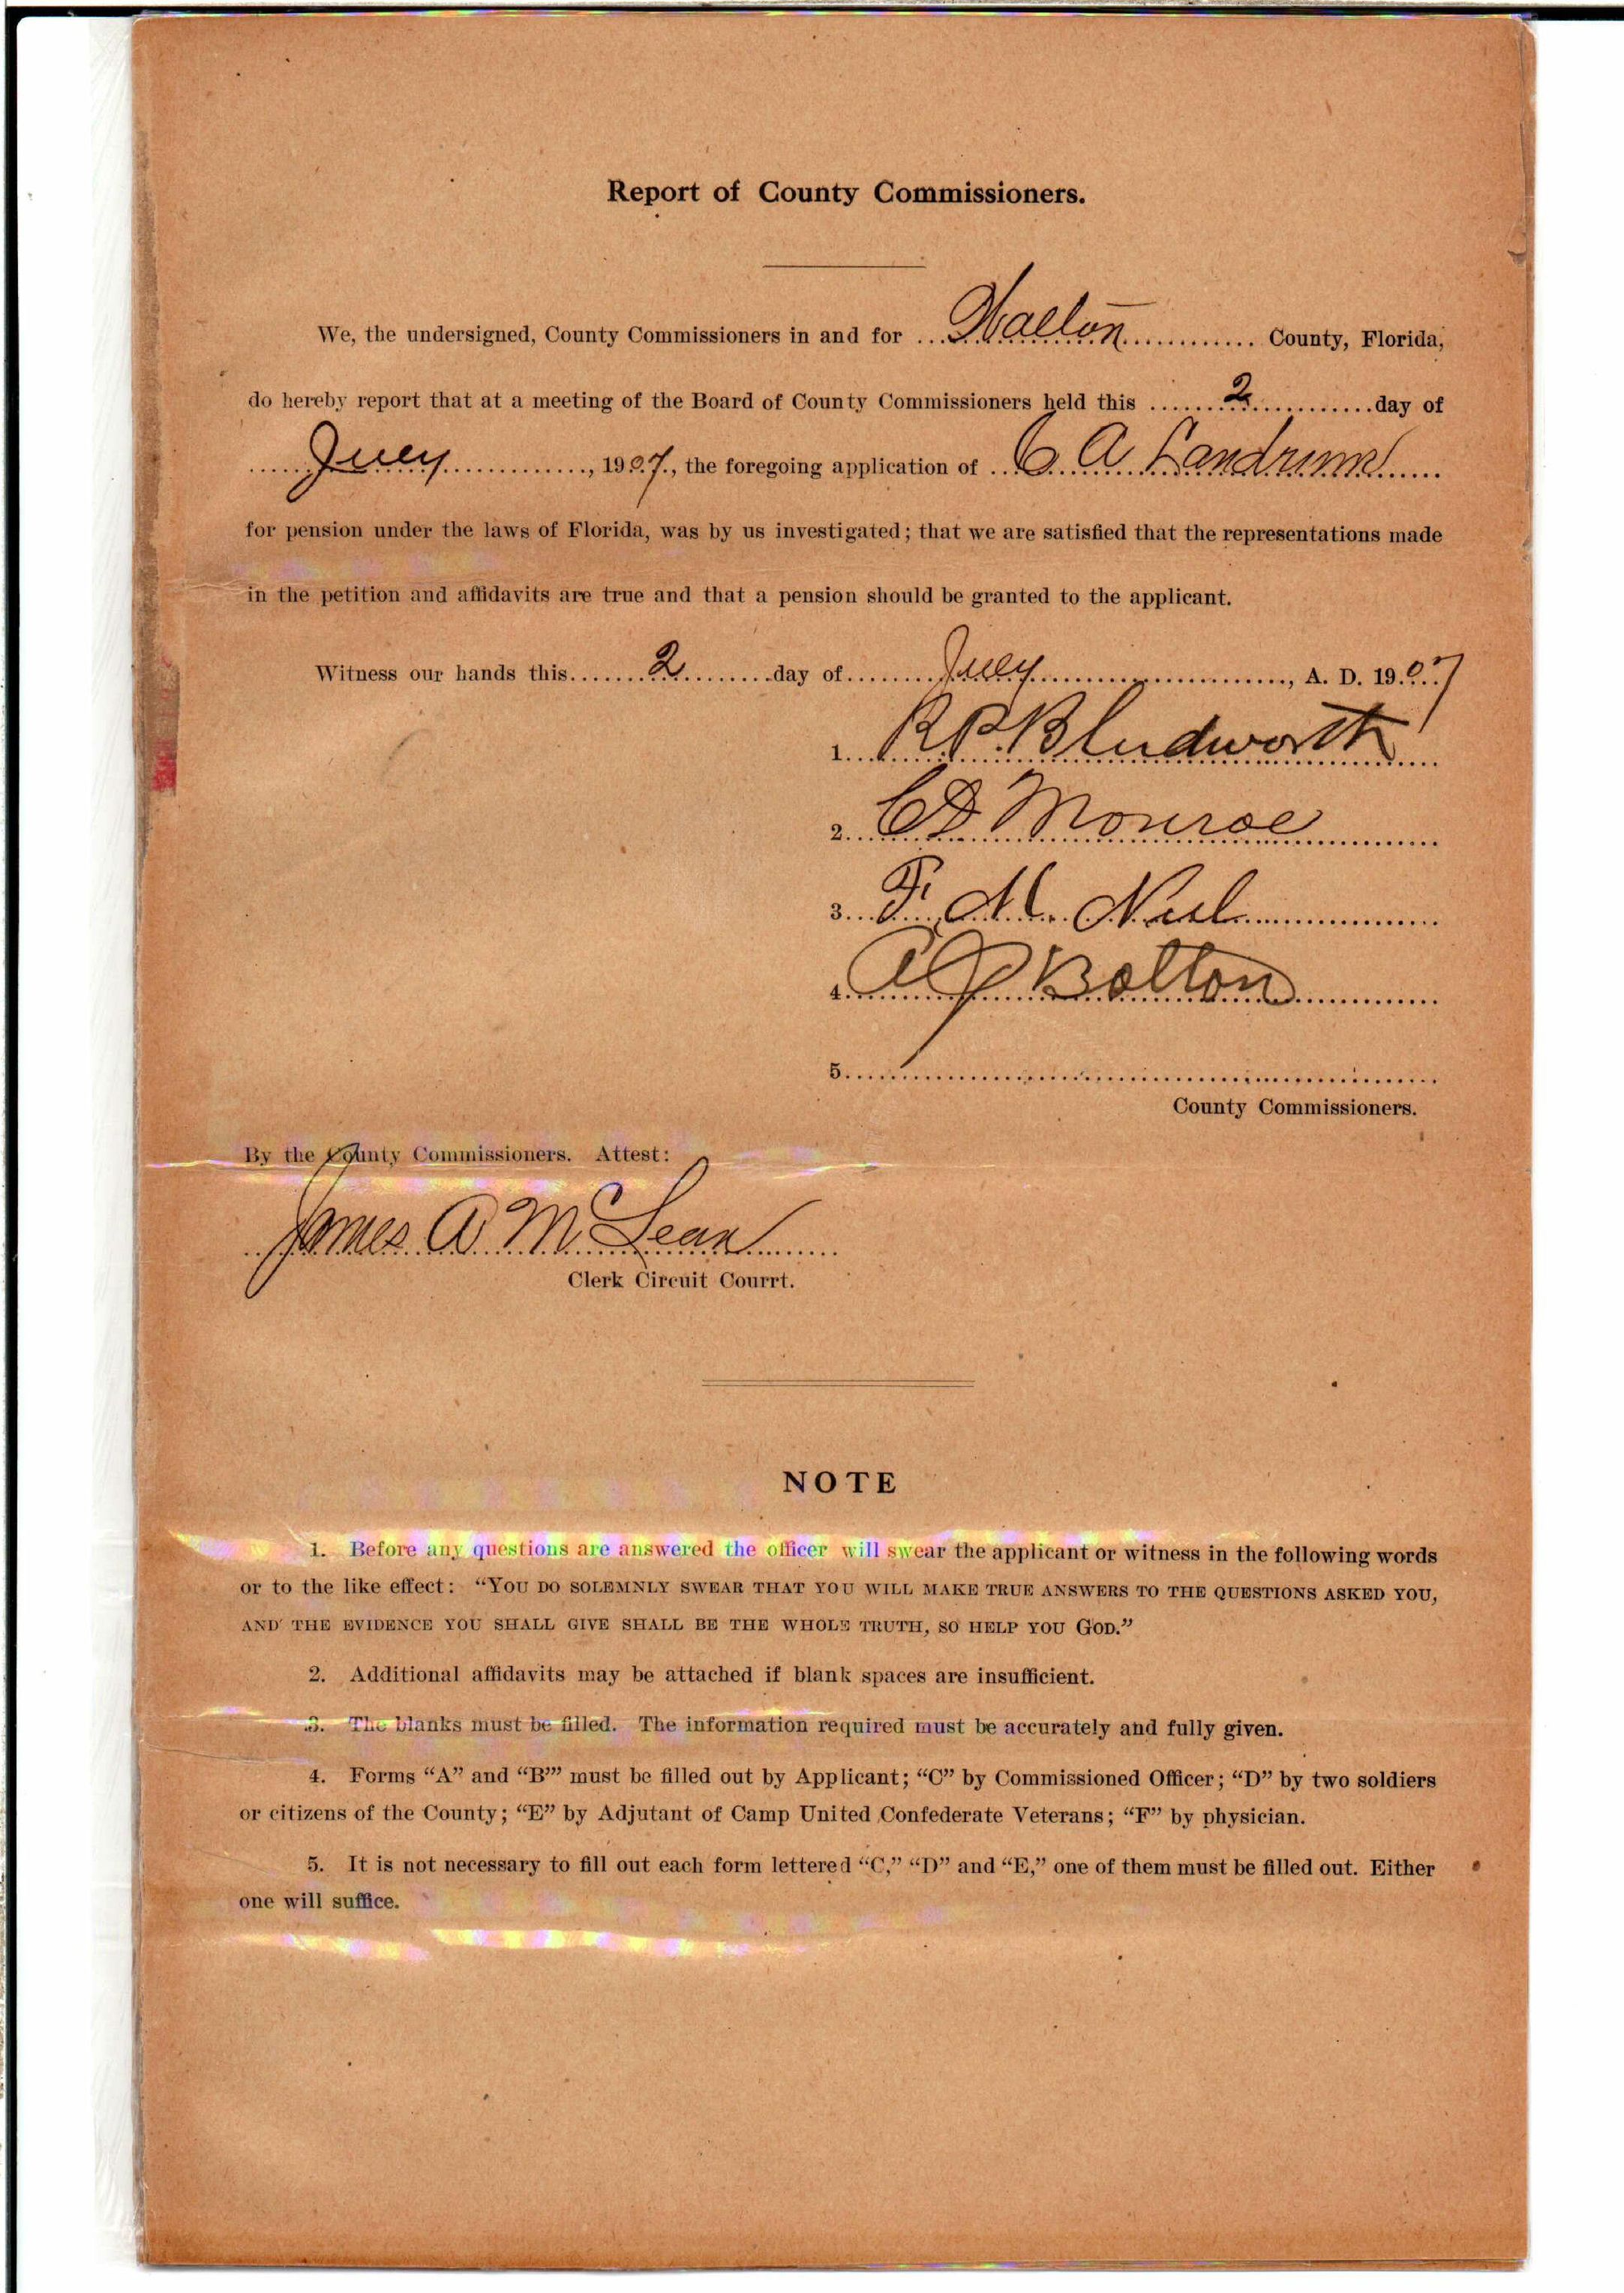 Report of County Commissioners.
We, the undersigned, County Commissioners in and for Walton County, Florida,
do hereby report that at a meeting of the Board of County Commissioners held this 2 day of
July, 1907, the foregoing application of C. A. Landrum
for pension under the laws of Florida, was by us investigated; that we are satisfied that the representations made
in the petition and affidavits are true and that a pension should be granted to the applicant.
Witness our hands this 2 day of July, A. D. 1907
1. R.P. Bludworth
2. C D Monroe
3. F. M. 
4. A J Bolton
5.
County Commissioners.
By the County Commissioners. Attest:
James A McLean
Clerk Circuit Courrt.
NOTE
1. Before any questions are answered the officer will swear the applicant or witness in the following words
or to the like effect: “YOU DO SOLEMNLY SWEAR THAT YOU WILL MAKE TRUE ANSWERS TO THE QUESTIONS ASKED YOU,
AND THE EVIDENCE YOU SHALL GIVE SHALL BE THE WHOLE TRUTH, SO HELP YOU GOD.”
2. Additional affidavits may be attached if blank spaces are insufficient.
3. The blanks must be filled. The information required must be accurately and fully given.
4. Forms “A” and “B”’ must be filled out by Applicant; “C” by Commissioned Officer; “D” by two soldiers
or citizens of the County; “E” by Adjutant of Camp United Confederate Veterans; “F” by physician.
5. It is not necessary to fill out each form lettered “C,” “D” and “E,” one of them must be filled out. Either
one will suffice.